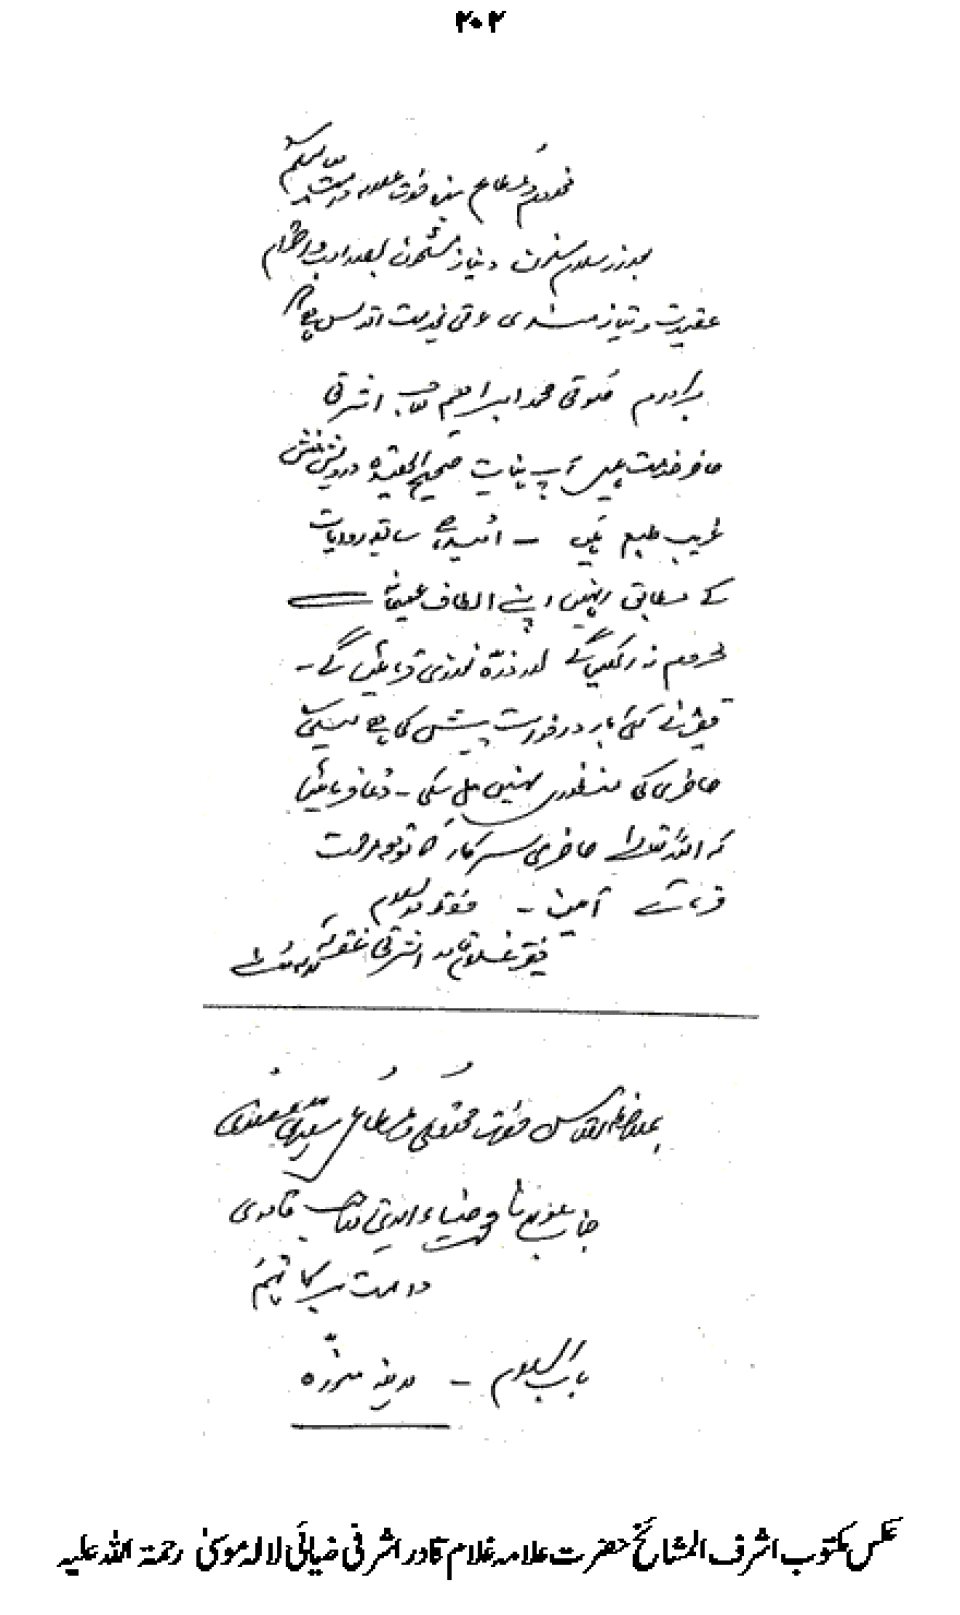 ۲۰۲
مخدوم و مطاع من حضرت علامہ دامت
بعد از سلام مسنون و نیاز مشحون بصد ادب و احترام
عقیدت و نیاز مندی عرض بخدمت اقدس ہے
برادرم صوفی محمد ابراہیم صاحب اشرفی
حاضر خدمت ہیں آپ نہایت صحیح العقیدہ درویش منش
غریب طبع ہیں ۔ امید ہے سابقہ روایات
کے مطابق انہیں اپنے الطاف عمیمانہ سے
محروم نہ رکھیں گے اور ذرہ نوازی فرمائیں گے ۔
فقیر نے کئی بار درخواست پیش کی ہے لیکن
حاضری کی منظوری نہیں مل سکی ۔ دعا فرمائیں
کہ اللہ تعالیٰ حاضری سرکار کا توجہ مرحمت
فرمائے آمین ۔ فقط والسلام
فقیر غلام قادر اشرفی غفرلہ
حضرت مخدومی و مطاعی سیدی
جناب ضیاء الدین صاحب قادری
دامت برکاتہم
باب السلام ۔ مدینہ منورہ
عکس مکتوب اشرف المشائخ حضرت علامہ غلام قادر اشرفی ضیائی لالہ موسیٰ رحمۃ اللہ علیہ